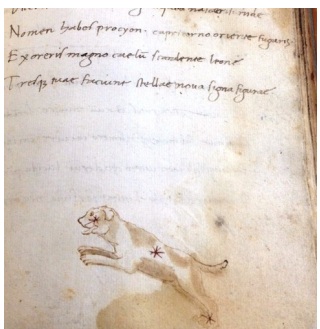 Nomen habes procyon. capricorno oriente fugaris
Exoreris magno caelū scandente leone
Tresq; tuae faciunt stellae nova signa figurae